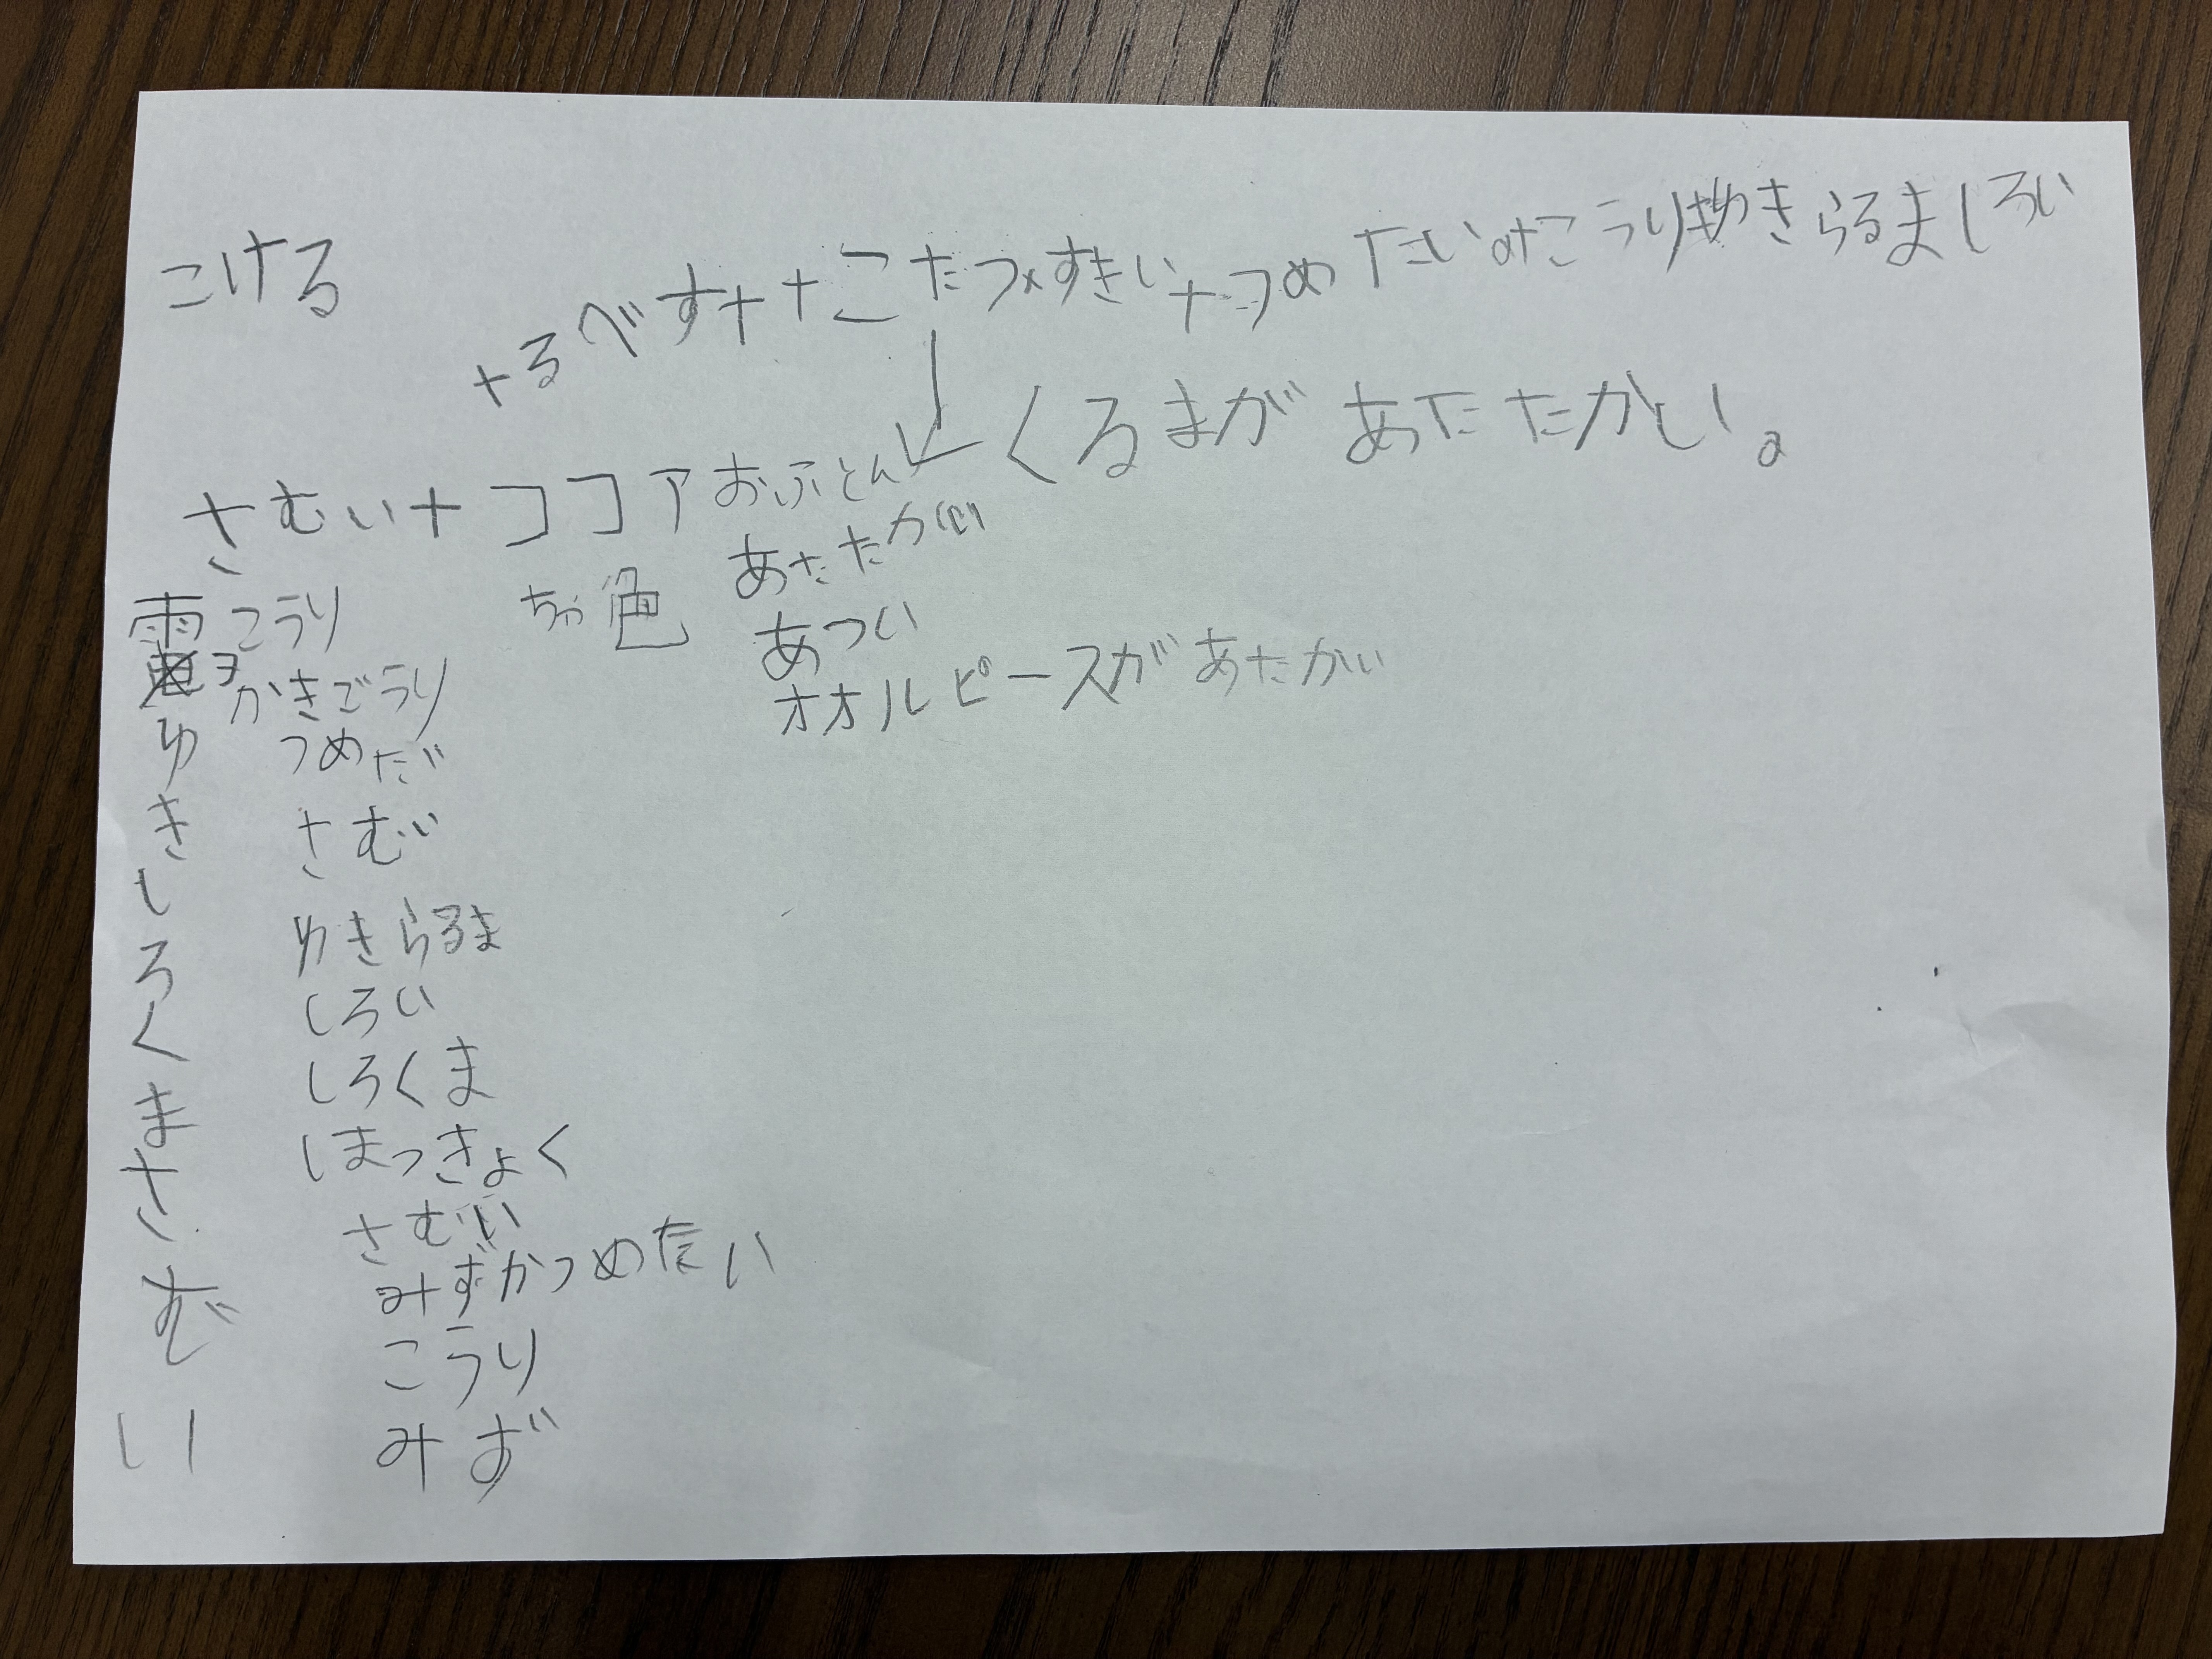 こける
+るべす++こたつ×すきい+つめたい+こうり+ゆきらるましろい
くるまがあたたかい。
さむい+ココアおふとん
あたたかい
ちゃ色
あつい
オオルピースがあたかい
こうり
かきごうり
つめたい
さむい
ゆきらるま
しろい
しろくま
ほっきょく
さむい
みずかつめたい
こうり
みず
雪
ゆきしろくまさむい